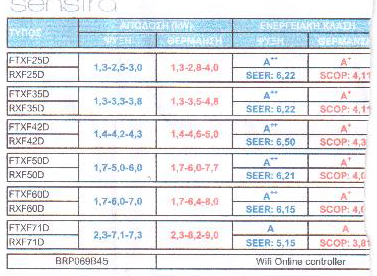 sensira
ΤΥΠΟΣ ΑΠΟΔΟΣΗ (kW) ΕΝΕΡΓΕΙΑΚΗ ΚΛΑΣΗ
ΨΥΞΗ ΘΕΡΜΑΝΣΗ ΨΥΞΗ ΘΕΡΜΑΝΣ
FTXF25D 1,3-2,5-3,0 1,3-2,8-4,0 A++ A+
RXF25D SEER: 6,22 SCOP: 4,11
FTXF35D 1,3-3,3-3,8 1,3-3,5-4,8 A++ A+
RXF35D SEER: 6,22 SCOP: 4,11
FTXF42D 1,4-4,2-4,3 1,4-4,6-5,0 A++ A+
RXF42D SEER: 6,50 SCOP: 4,3
FTXF50D 1,7-5,0-6,0 1,7-6,0-7,7 A++ A+
RXF50D SEER: 6,21 SCOP: 4,0
FTXF60D 1,7-6,0-7,0 1,7-6,4-8,0 A++ A+
RXF60D SEER: 6,15 SCOP: 4,0
FTXF71D 2,3-7,1-7,3 2,3-8,2-9,0 A A
RXF71D SEER: 5,15 SCOP: 3,81
BRP069B45 Wifi Online controller